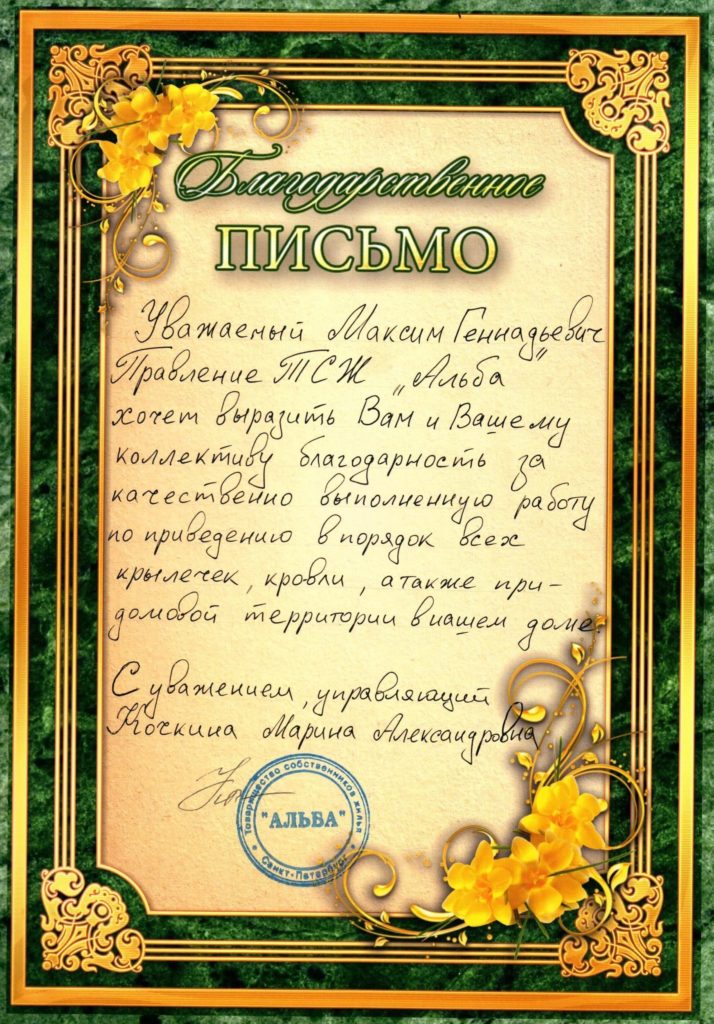 Благодарственное
ПИСЬМО
Уважаемый Максим Геннадьевич
Правление ТСЖ „Альба”
хочет выразить Вам и Вашему
коллективу благодарность за
качественно выполненную работу
по приведению в порядок всех
крылечек, кровли, а также при-
домовой территории в нашем доме.
С уважением, управляющий
Кочкина Марина Александровна
Товарищество собственников жилья
"АЛЬБА"
Санкт-Петербург